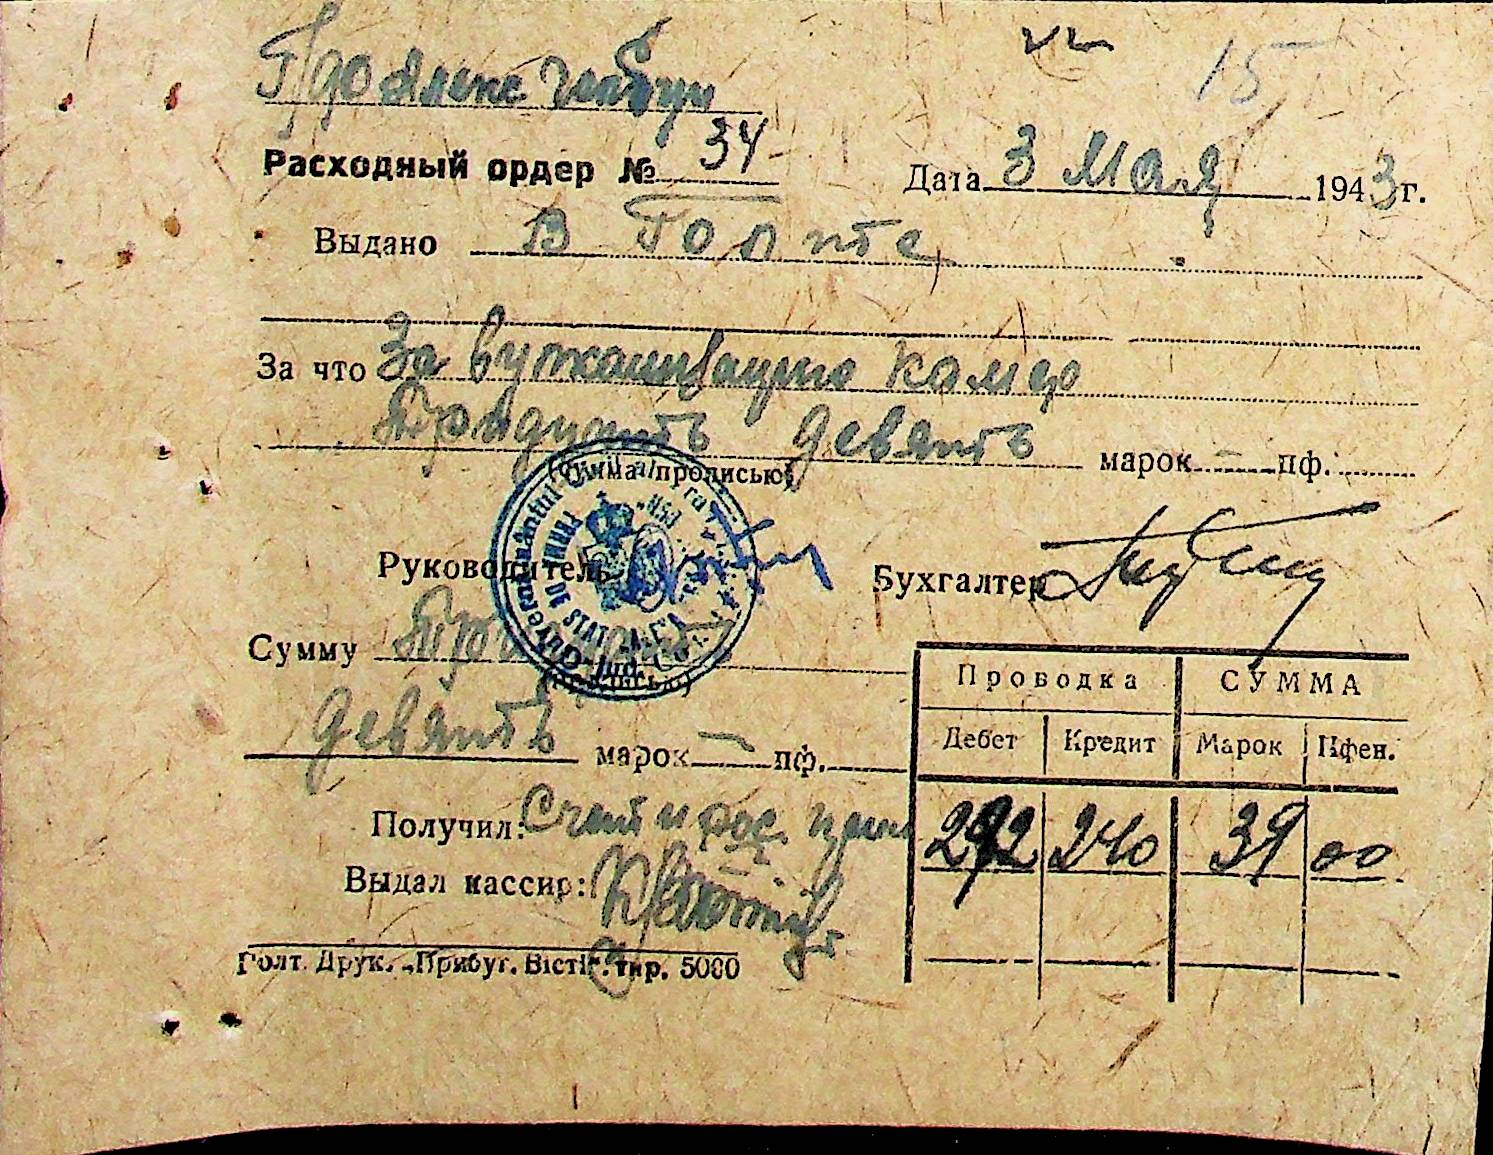 15
Расходный ордер № 34 Дата 3 Мая 1943 г.
Выдано В Голте
За что За вулканизацию камер
Тридцать девять марок - пф.
(Сумма прописью)
Guvernământul
FERMA DE STAT
Руководитель Бухгалтер
Сумму Тридцать
(прописью)
девять марок - пф.
Проводка СУММА
Дебет Кредит Марок Пфен.
292 240 39 00
Получил: Счет и рос.
Выдал кассир:
Голт. Друк. „Прибуг. Вісті“. тир. 5000